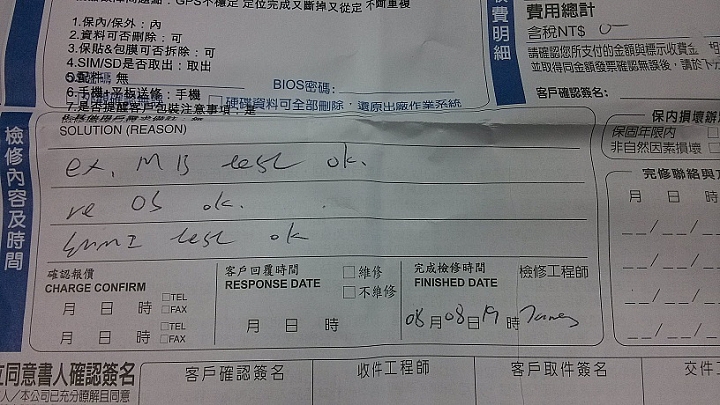 GPS不穩定 定位完成又斷掉又從定 不斷重複
1.保內/保外：內
2.資料可否刪除：可
3.保貼&包膜可否拆除：可
4.SIM/SD是否取出：取出
5.配件：無
6.手機+平板送修：手機
7.是否提醒客戶包裝注意事項：是
BIOS密碼：
硬碟資料可全部刪除，還原出廠作業系統
費明細
費用總計
含稅NT$ 0
請確認您所支付的金額與標示收費金
並取得同金額發票確認無誤後，請於下
客戶確認簽名：
檢修內容及時間
SOLUTION (REASON)
ex. MB test ok.
re OS ok.
test ok
保內損壞辦
保固年限內
非自然因素損壞
完修聯絡與
月 日 時
__/__/__
__/__/__
__/__/__
__/__/__
確認報價
CHARGE CONFIRM
月 日 時 TEL FAX
月 日 時 TEL FAX
客戶回覆時間
RESPONSE DATE
維修
不維修
月 日 時
完成檢修時間
FINISHED DATE
檢修工程師
08月08日19時 James
立同意書人確認簽名
人／本公司已充分瞭解且同意
客戶確認簽名
收件工程師
客戶取件簽名
交件工